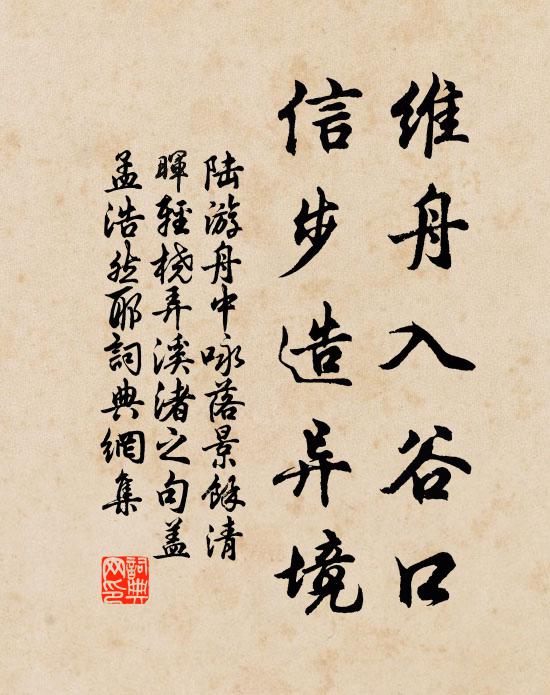 维舟入谷口
信步造异境
陆游舟中咏落景馀清
暉輕桡弄溪渚之句盖
孟浩然耶詞典網集
詞典
网印